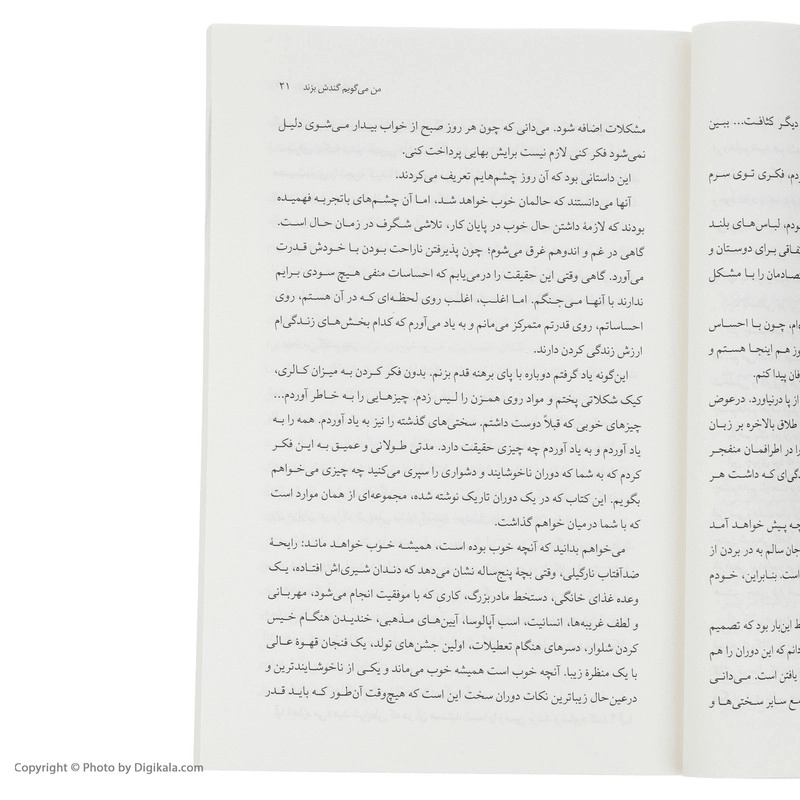 من می‌گویم گندش بزند ۲۱
مشکلات اضافه شود. می‌دانی که چون هر روز صبح از خواب بیدار می‌شوی دلیل
نمی‌شود فکر کنی لازم نیست برایش بهایی پرداخت کنی.
این داستانی بود که آن روز چشم‌هایم تعریف می‌کردند.
آنها می‌دانستند که حالمان خوب خواهد شد، اما آن چشم‌های باتجربه فهمیده
بودند که لازمهٔ داشتن حال خوب در پایان کار، تلاشی شگرف در زمان حال است.
گاهی در غم و اندوهم غرق می‌شوم؛ چون پذیرفتن ناراحت بودن با خودش قدرت
می‌آورد. گاهی وقتی این حقیقت را درمی‌یابم که احساسات منفی هیچ سودی برایم
ندارند با آنها می‌جنگم. اما اغلب، اغلب روی لحظه‌ای که در آن هستم، روی
احساساتم، روی قدرتم متمرکز می‌مانم و به یاد می‌آورم که کدام بخش‌های زندگی‌ام
ارزش زندگی کردن دارند.
این‌گونه یاد گرفتم دوباره با پای برهنه قدم بزنم. بدون فکر کردن به میزان کالری،
کیک شکلاتی پختم و مواد روی همزن را لیس زدم. چیزهایی را به خاطر آوردم...
چیزهای خوبی که قبلاً دوست داشتم. سختی‌های گذشته را نیز به یاد آوردم. همه را به
یاد آوردم و به یاد آوردم چه چیزی حقیقت دارد. مدتی طولانی و عمیق به این فکر
کردم که به شما که دوران ناخوشایند و دشواری را سپری می‌کنید چه چیزی می‌خواهم
بگویم. این کتاب که در یک دوران تاریک نوشته شده، مجموعه‌ای از همان موارد است
که با شما درمیان خواهم گذاشت.
می‌خواهم بدانید که آنچه خوب بوده است، همیشه خوب خواهد ماند: رایحهٔ
ضدآفتاب نارگیلی، وقتی بچهٔ پنج‌ساله نشان می‌دهد که دندان شیری‌اش افتاده، یک
وعده غذای خانگی، دستخط مادربزرگ، کاری که با موفقیت انجام می‌شود، مهربانی
و لطف غریبه‌ها، انسانیت، اسب آپالوسا، آیین‌های مذهبی، خندیدن هنگام خیس
کردن شلوار، دسرهای هنگام تعطیلات، اولین جشن‌های تولد، یک فنجان قهوهٔ عالی
با یک منظرهٔ زیبا. آنچه خوب است همیشه خوب می‌ماند و یکی از ناخوشایندترین و
درعین‌حال زیباترین نکات دوران سخت این است که هیچ‌وقت آن‌طور که باید قدر
دیگر کثافت... ببین
ردم، فکری توی سرم
بودم، لباس‌های بلند
فاقی برای دوستان و
صادمان را با مشکل
ام، چون با احساس
وز هم اینجا هستم و
فان پیدا کنم.
از پا درنیاورد. درعوض
طلاق بالاخره بر زبان
را در اطرافمان منفجر
گی‌ای که داشت هر
چه پیش خواهد آمد
جان سالم به در بردن از
است. بنابراین، خودم
ط این‌بار بود که تصمیم
دانم که این دوران را هم
یافتن است. می‌دانی
مع سایر سختی‌ها و
Copyright © Photo by Digikala.com